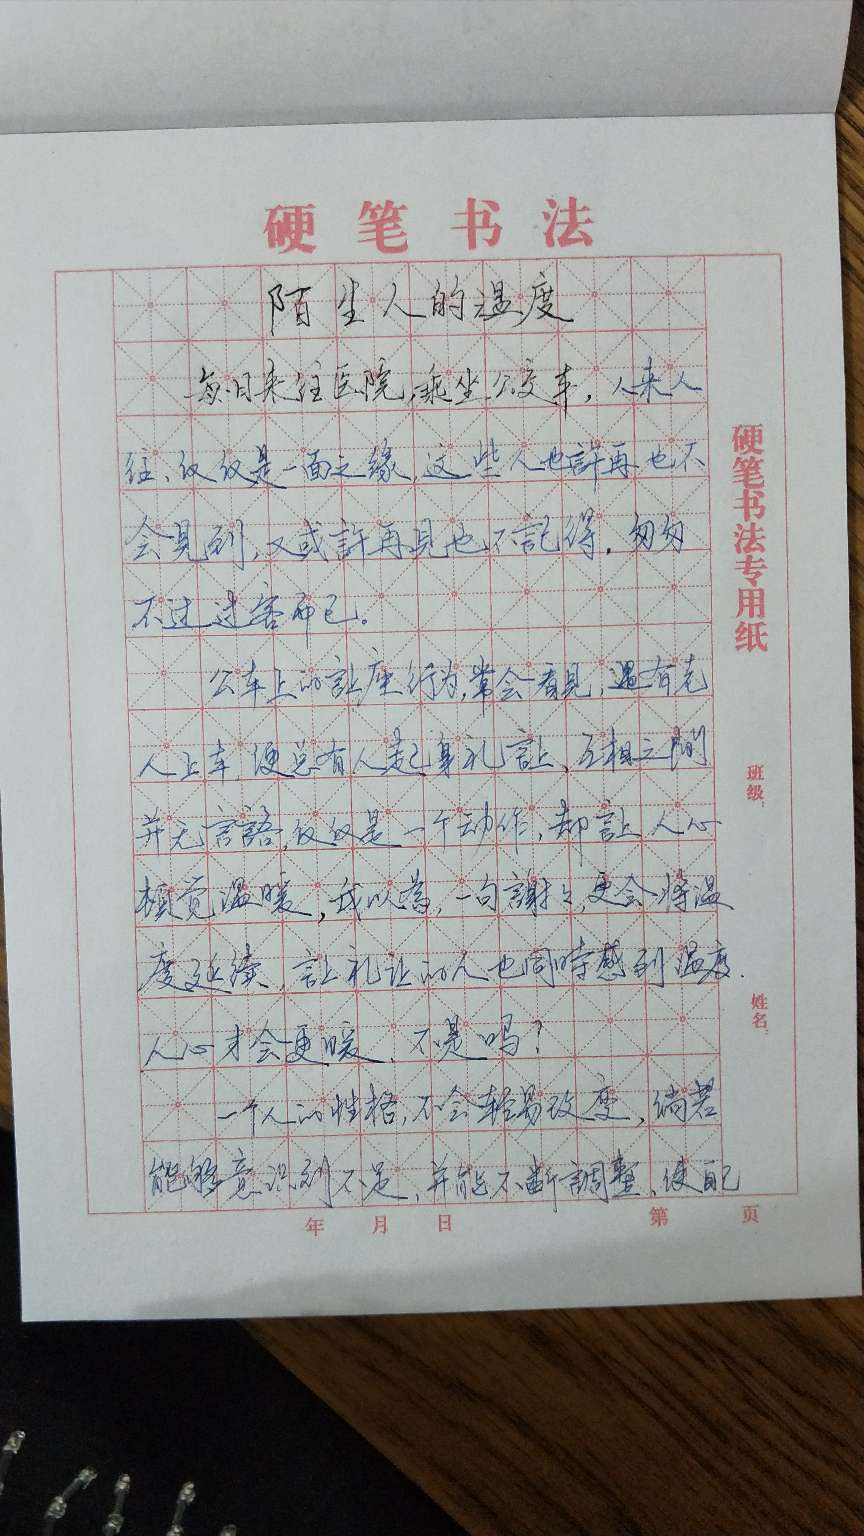 硬笔书法
陌生人的温度
每日来往医院,乘坐公交车,人来人
往、仅仅是一面之缘,这些人也許再也不
会見到,又或許再見也不記得,匆匆
不过过客而已。
公车上的讓座行为,常会看見,遇有老
人上车,便总有人起身礼讓、互相之間
并无言語,仅仅是一个动作,却讓人心
頓觉温暖,我以為,一句謝謝,更会将温
度延续、讓礼让的人也同時感到温度.
人心才会更暖、不是吗?
一个人的性格,不会轻易改变、倘若
能够意识到不足,并能不断調整、使自己
年 月 日 第 页
硬笔书法专用纸
班级:
姓名: